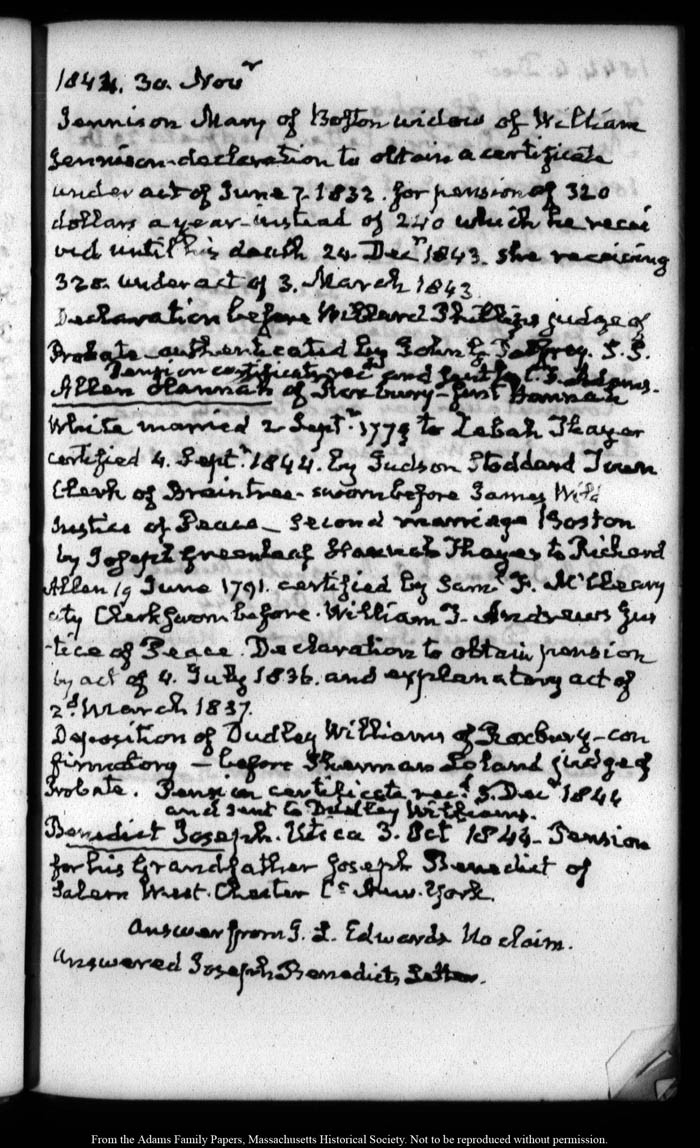 1844. 30. Nov.r
Jennison Mary of Boston widow of William
Jennison declaration to obtain a certificate
under act of June 7. 1832. for pension of 320
dollars a year instead of 240 which he recei
ved until his death 24. Dec.r 1843. she receiving
320. under act of 3. March 1843.
Declaration before Willard Phillips judge of
Probate authenticated by John G Palfrey. S.S.
Pension certificate rec.d and sent by C. F. Adams.
Allen Hannah of Roxbury - first Hannah
White married 2 Sept.r 1779 to Zebah Thayer
certified 4. Sept.r 1844. by Judson Stoddard Town
Clerk of Braintree - sworn before James Wild
Justice of Peace - Second marriage Boston
by Joseph Greenleaf Hannah Thayer to Richard
Allen 19 June 1791. certified by Sam.l F. McCleary
city Clerk sworn before William T. Andrews Jus
tice of Peace. Declaration to obtain pension
by act of 4. July 1836. and explanatory act of
2.d March 1837.
Deposition of Dudley Williams of Roxbury - con
firmatory - before Sherman Leland judge of
Probate. Pension certificate rec.d 5. Dec.r 1844
and sent to Dudley Williams.
Benedict Joseph. Utica 3. Oct 1844 - Pension
for his Grandfather Joseph Benedict of
Salem West-Chester C.y New-York.
Answer from J. L. Edwards No claim.
Answered Joseph Benedict's Letter.
From the Adams Family Papers, Massachusetts Historical Society. Not to be reproduced without permission.